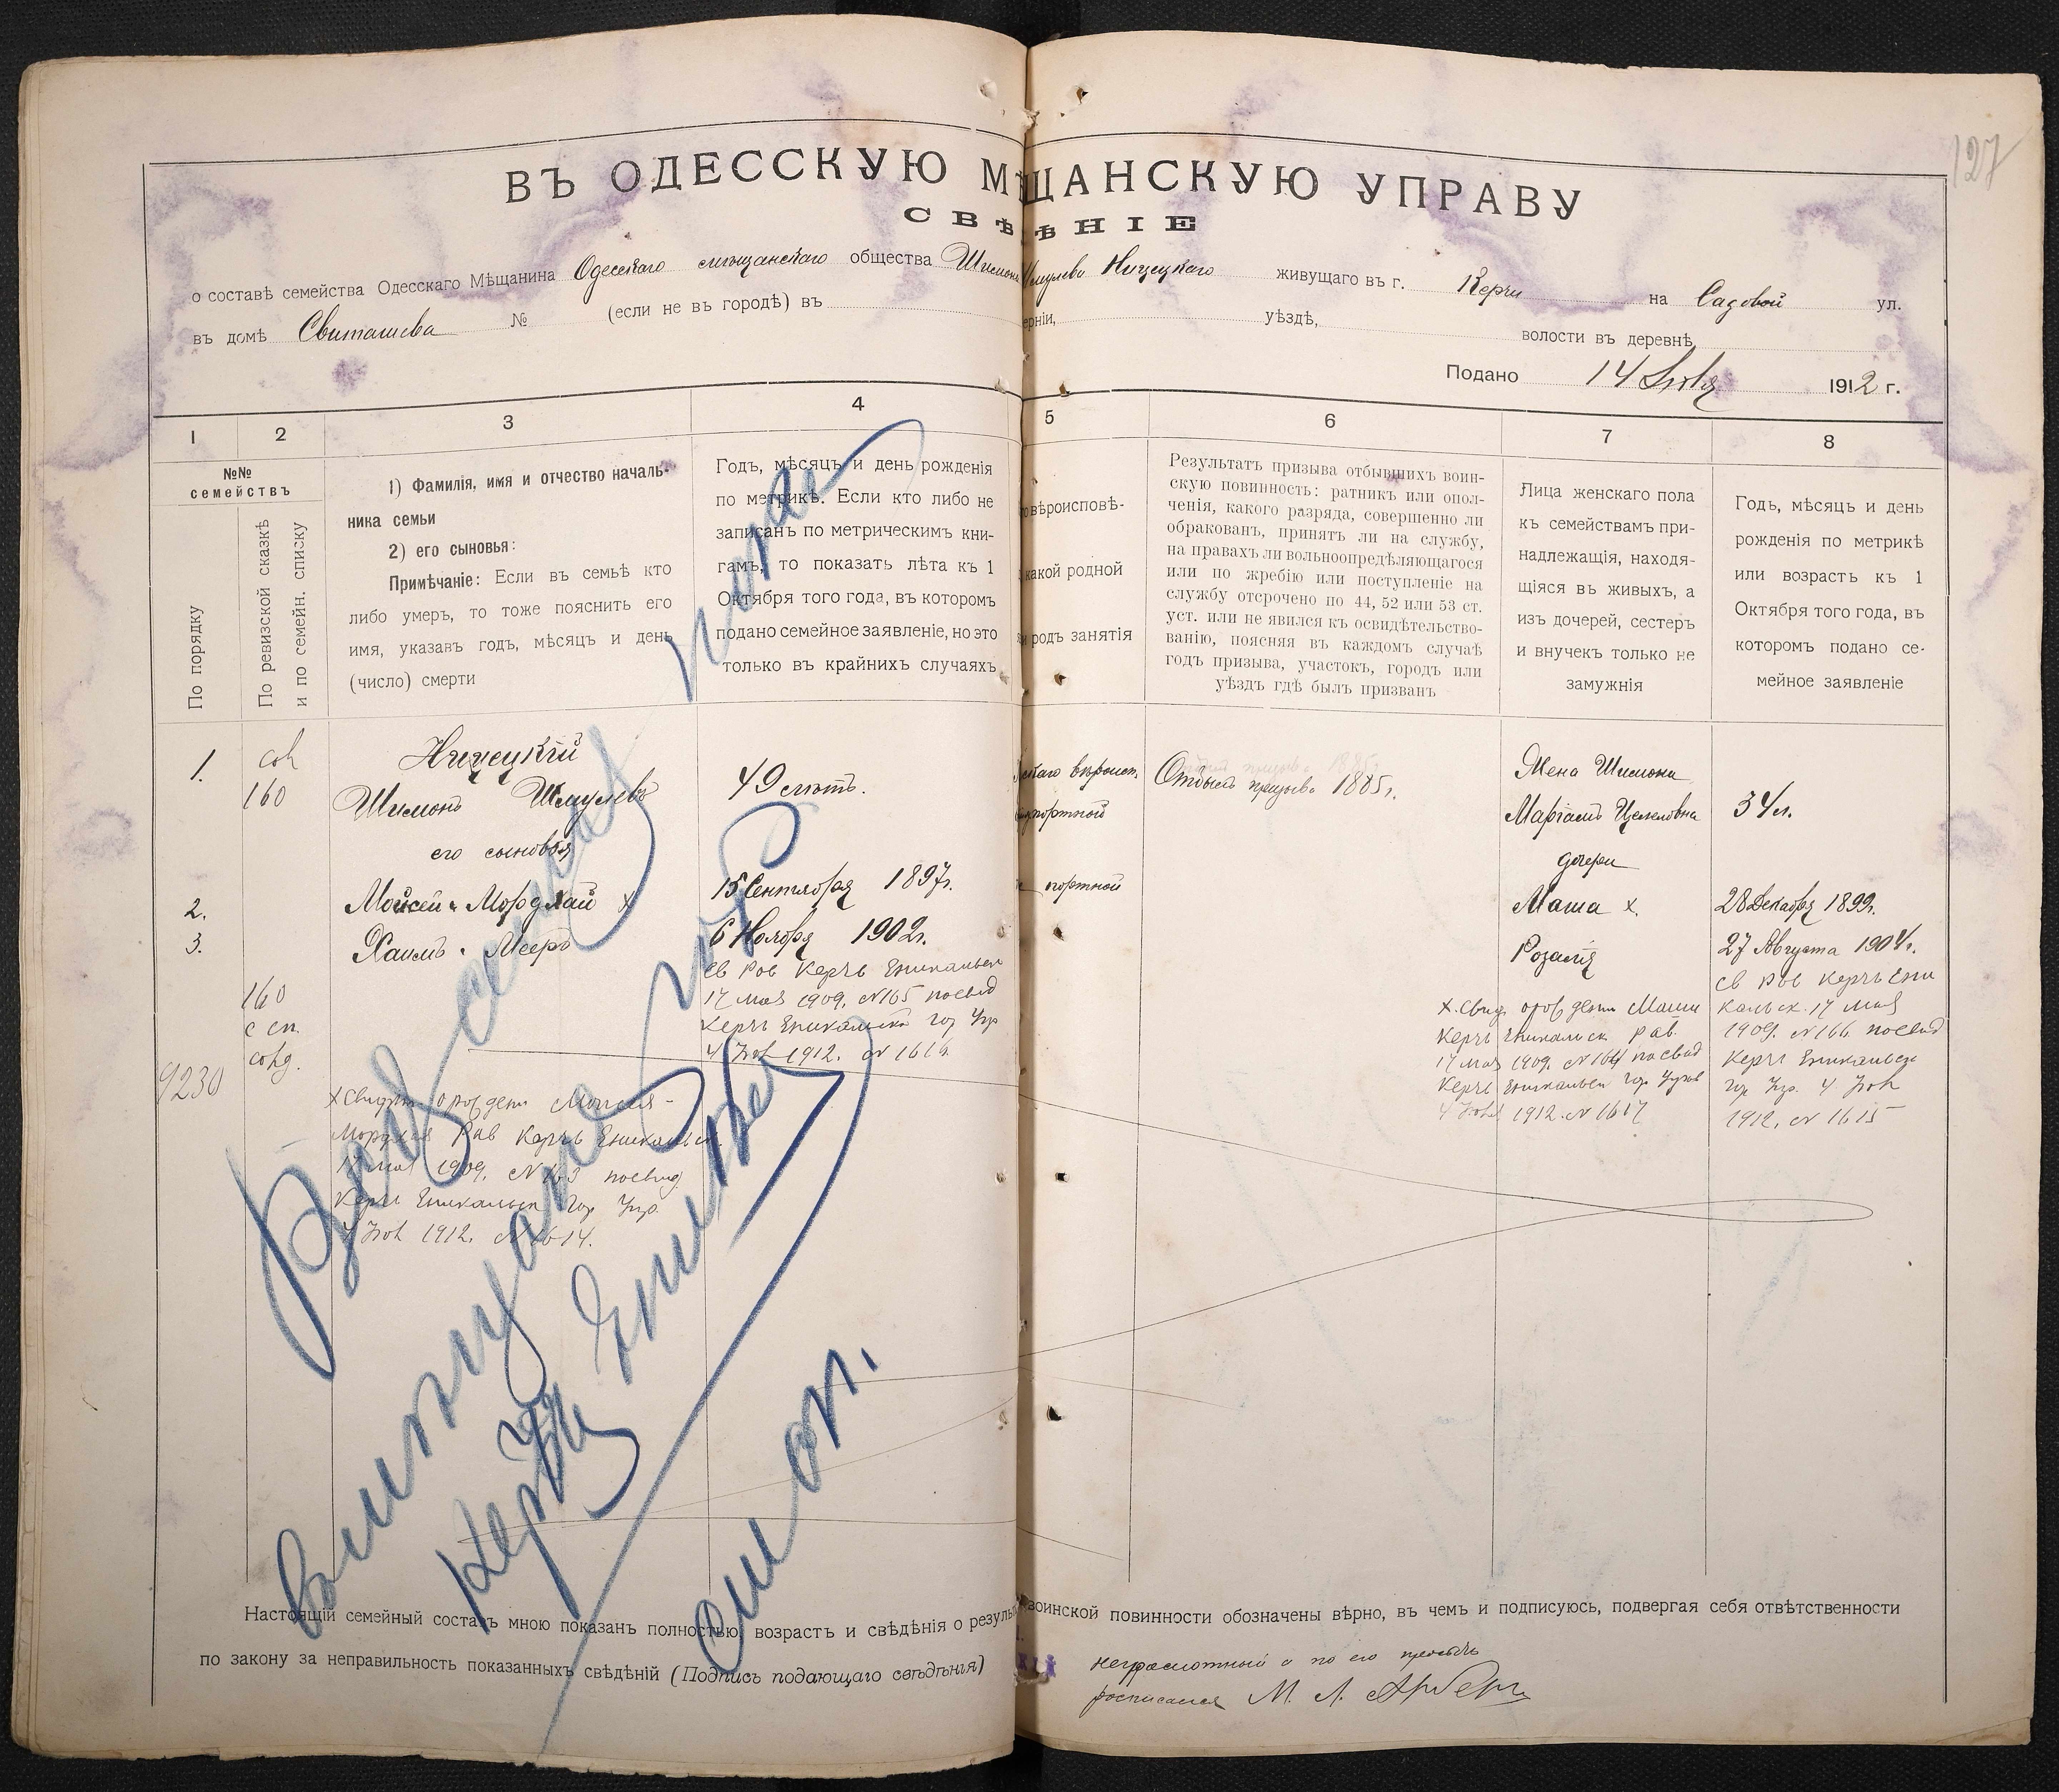 127
ВЪ ОДЕССКУЮ МѢЩАНСКУЮ УПРАВУ
СВѢ ѢНІЕ
о составѣ семейства Одесскаго Мѣщанина Одесскаго мѣщанскаго общества Шимона Шмулева Ницецкаго живущаго въ г. Керчи на Садовой ул.
въ домѣ Свиташева № (если не въ городѣ) въ ерніи, уѣздѣ, волости въ деревнѣ
Подано 14 1912 г.
1 2 3 4 5 6 7 8
№№ семействъ
По порядку
По ревизской сказкѣ
и по семейн. списку
1) Фамилія, имя и отчество началь-
ника семьи
2) его сыновья:
Примѣчаніе: Если въ семьѣ кто
либо умеръ, то тоже пояснить его
имя, указавъ годъ, мѣсяцъ и день
(число) смерти
Годъ, мѣсяцъ и день рожденія
по метрикѣ. Если кто либо не
записанъ по метрическимъ кни-
гамъ, то показать лѣта къ 1
Октября того года, въ которомъ
подано семейное заявленіе, но это
только въ крайнихъ случаяхъ
вѣроисповѣ-
какой родной
и родъ занятія
Результатъ призыва отбывшихъ воин-
скую повинность: ратникъ или опол-
ченія, какого разряда, совершенно ли
обракованъ, принятъ ли на службу,
на правахъ ли вольноопредѣляющагося
или по жребію или поступленіе на
службу отсрочено по 44, 52 или 53 ст.
уст. или не явился къ освидѣтельство-
ванію, поясняя въ каждомъ случаѣ
годъ призыва, участокъ, городъ или
уѣздъ гдѣ былъ призванъ
Лица женскаго пола
къ семействамъ при-
надлежащія, находя-
щіяся въ живыхъ, а
изъ дочерей, сестеръ
и внучекъ только не
замужнія
Годъ, мѣсяцъ и день
рожденія по метрикѣ
или возрастъ къ 1
Октября того года, въ
которомъ подано се-
мейное заявленіе
1.
160
Ницецкій
Шимонъ Шмулевъ
49 лѣтъ.
портной
Отбылъ призывъ 1885 г.
Жена Шимона
Маріамъ
34 л.
его сыновья
дочери
2.
Мойсей-Мордхай х
15 Сентября 1897 г.
портной
Маша х.
28 Декабря 1899 г.
3.
Хаимъ-Мееръ
6 Ноября 1902 г.
Розалія
27 Августа 1904 г.
160
с сп.
9230
св Рав Керчь Еникальск
17 мая 1909. N 165 посвид
Керчь Еникальск гор Упр
4 1912. N 1616.
х Свид о рожден Моисея-
Мордхая Рав Керчь Еникальск.
17 мая 1909. N 163 посвид
Керчь Еникальск гор Упр.
4 1912. N 1614.
х. Свид о рожден Маши
Керчь Еникальск Рав.
17 мая 1909. N 164 посвид
Керчь Еникальск гор Управ
4 1912. N 1617
св Рав Керчь Ени
кальск. 17 мая
1909. N 166 посвид
Керчь Еникальск
гор Упр. 4
1912. N 1615
Настоящій семейный составъ мною показанъ полностью, возрастъ и свѣдѣнія о резуль воинской повинности обозначены вѣрно, въ чемъ и подписуюсь, подвергая себя отвѣтственности
по закону за неправильность показанныхъ свѣдѣній (Подпись подающаго свѣдѣнія)
неграмотный а по его просьбѣ
росписался М. Л.